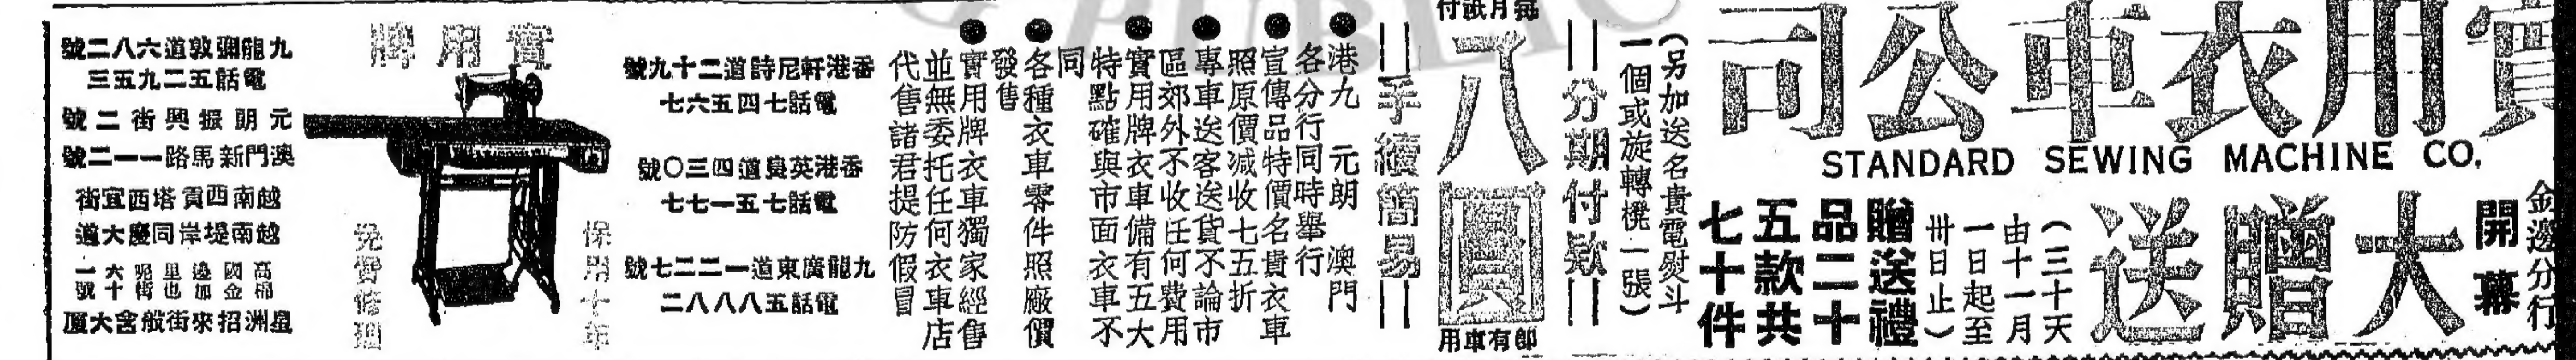 實用衣車公司
STANDARD SEWING MACHINE CO.
金邊分行
開幕
大贈送
(三十天
由十一月
一日起至
卅日止)
贈送禮
品二十
五款共
七十件
(另加送名貴電熨斗
一個或旋轉櫈一張)
=分期付欵=
每月祇付
八圓
即有車用
=手續簡易=
●港九 元朗 澳門
各分行同時舉行
●宣傳品特價名貴衣車
照原價減收七五折
●專車送客送貨不論市
區郊外不收任何費用
●實用牌衣車備有五大
特點確與市面衣車不
同
●各種衣車零件照廠價
發售
●實用牌衣車獨家經售
並無委托任何衣車店
代售諸君提防假冒
香港軒尼詩道二十九號
電話七四五六七
香港英皇道四三〇號
電話七五一七七
九龍廣東道一二二七號
電話五八八八二
實用牌
保用十年
免費修理
九龍彌敦道六八二號
電話五二九五三
元朗振興街二號
澳門新馬路一一二號
越南西貢塔西宜街
越南堤岸同慶大道
高棉國金邊加里也呢街六十一號
星洲招來街般含大厦